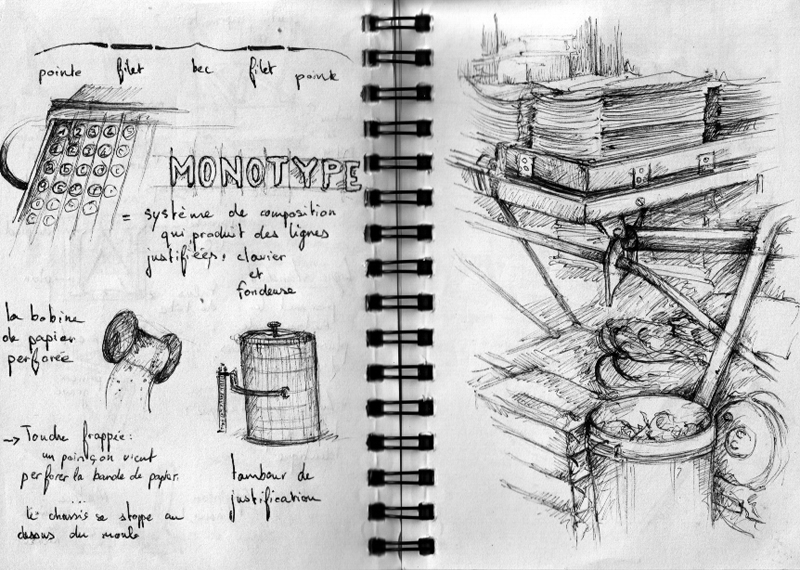 pointe filet bec filet pointe
MONOTYPE
= système de composition
qui produit des lignes
justifiées, clavier
et
fondeuse
la bobine
de papier
perforée
tambour de
justification
→ Touche frappée:
un poinçon vient
perforer la bande de papier.
le chassis se stoppe au
dessus du moule